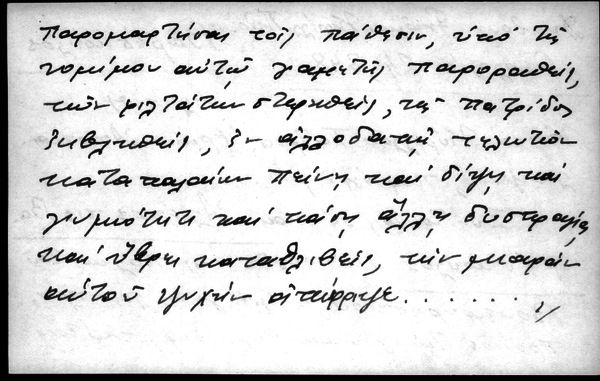 παρομαρτήσας τοῖς πάθεσιν, ὑπό τῆς
νομίμου αὐτοῦ γαμετῆς παροραθείς,
τῶν φιλτάτων στερηθείς, τῆς πατρίδος
ἐκβληθείς, ἐν ἀλλοδαπῇ τελευτῶν
καταπαλαίων πείνῃ καί δίψῃ καί
γυμνότητι καί πάσῃ ἄλλῃ δυστεραγίᾳ
καί ὕβρει καταθλιβείς, τήν μιαράν
αὐτοῦ ψυχήν ἀπέρρηξε.......